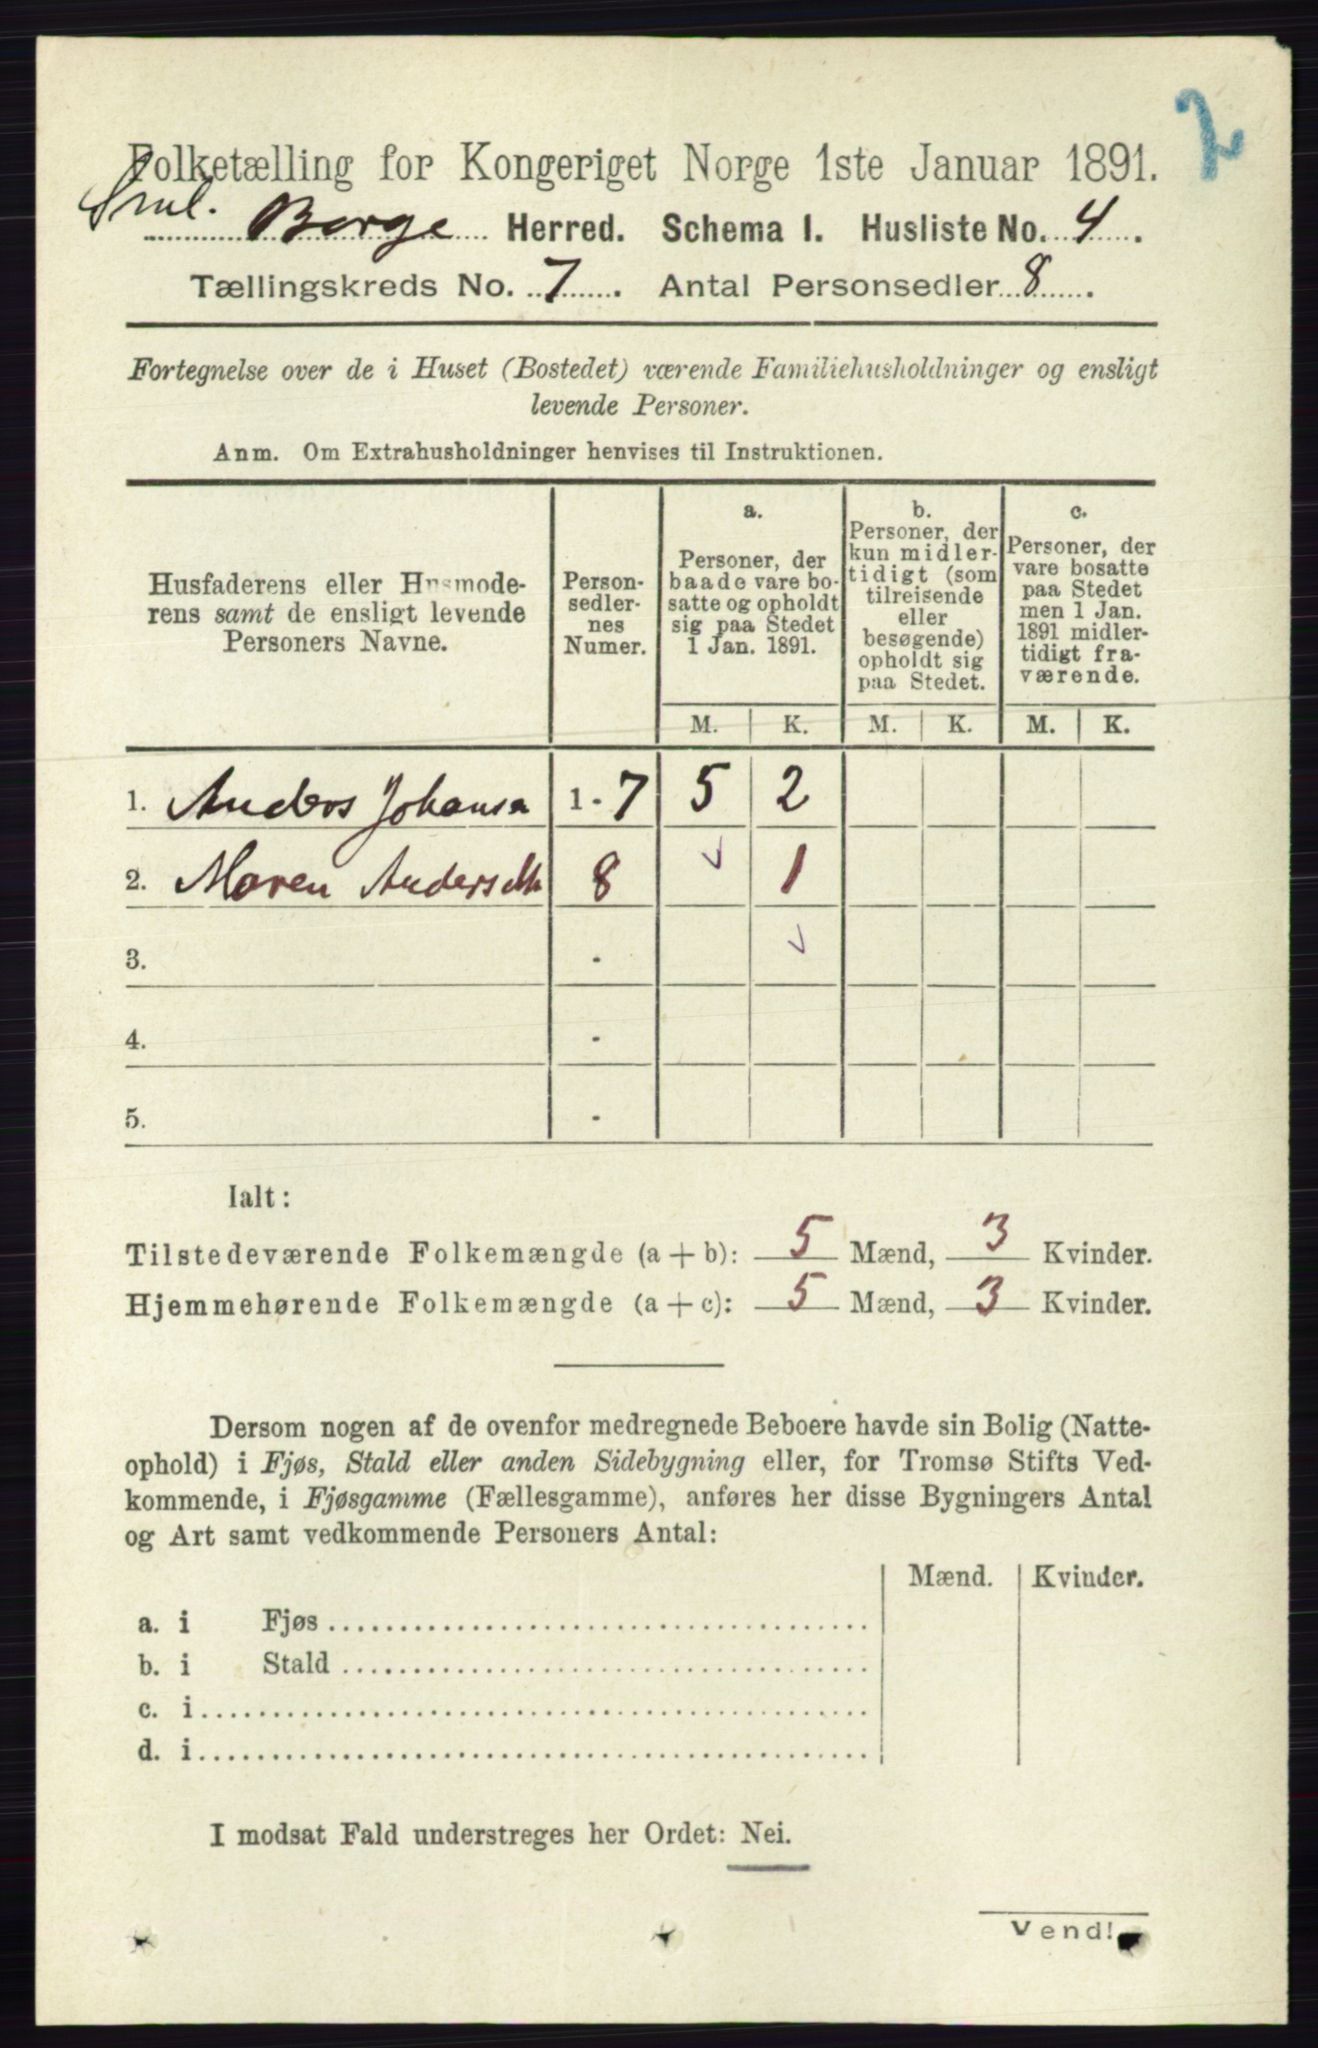 7
Folketælling for Kongeriget Norge 1ste Januar 1891.
Sml. Borge Herred. Schema I. Husliste No. 4.
Tællingskreds No. 7. Antal Personsedler 8.
Fortegnelse over de i Huset (Bostedet) værende Familiehusholdninger og ensligt
levende Personer.
Anm. Om Extrahusholdninger henvises til Instruktionen.
Husfaderens eller Husmode-
rens samt de ensligt levende
Personers Navne.
Person-
sedler-
nes
Numer.
a.
Personer, der
baade vare bo-
satte og opholdt
sig paa Stedet
1 Jan. 1891.
b.
Personer, der
kun midler-
tidigt (som
tilreisende
eller
besøgende)
opholdt sig
paa Stedet.
c.
Personer, der
vare bosatte
paa Stedet
men 1 Jan.
1891 midler-
tidigt fra-
værende.
M. K. M. K. M. K.
1. Anders Johansen 1 - 7 5 2
2. Maren Andersdtr 8 1
3. -
4. -
5. -
Ialt:
Tilstedeværende Folkemængde (a + b): 5 Mænd, 3 Kvinder.
Hjemmehørende Folkemængde (a + c): 5 Mænd, 3 Kvinder.
Dersom nogen af de ovenfor medregnede Beboere havde sin Bolig (Natte-
ophold) i Fjøs, Stald eller anden Sidebygning eller, for Tromsø Stifts Ved-
kommende, i Fjøsgamme (Fællesgamme), anføres her disse Bygningers Antal
og Art samt vedkommende Personers Antal:
Mænd. Kvinder.
a. i Fjøs
b. i Stald
c. i
d. i
I modsat Fald understreges her Ordet: Nei.
Vend!